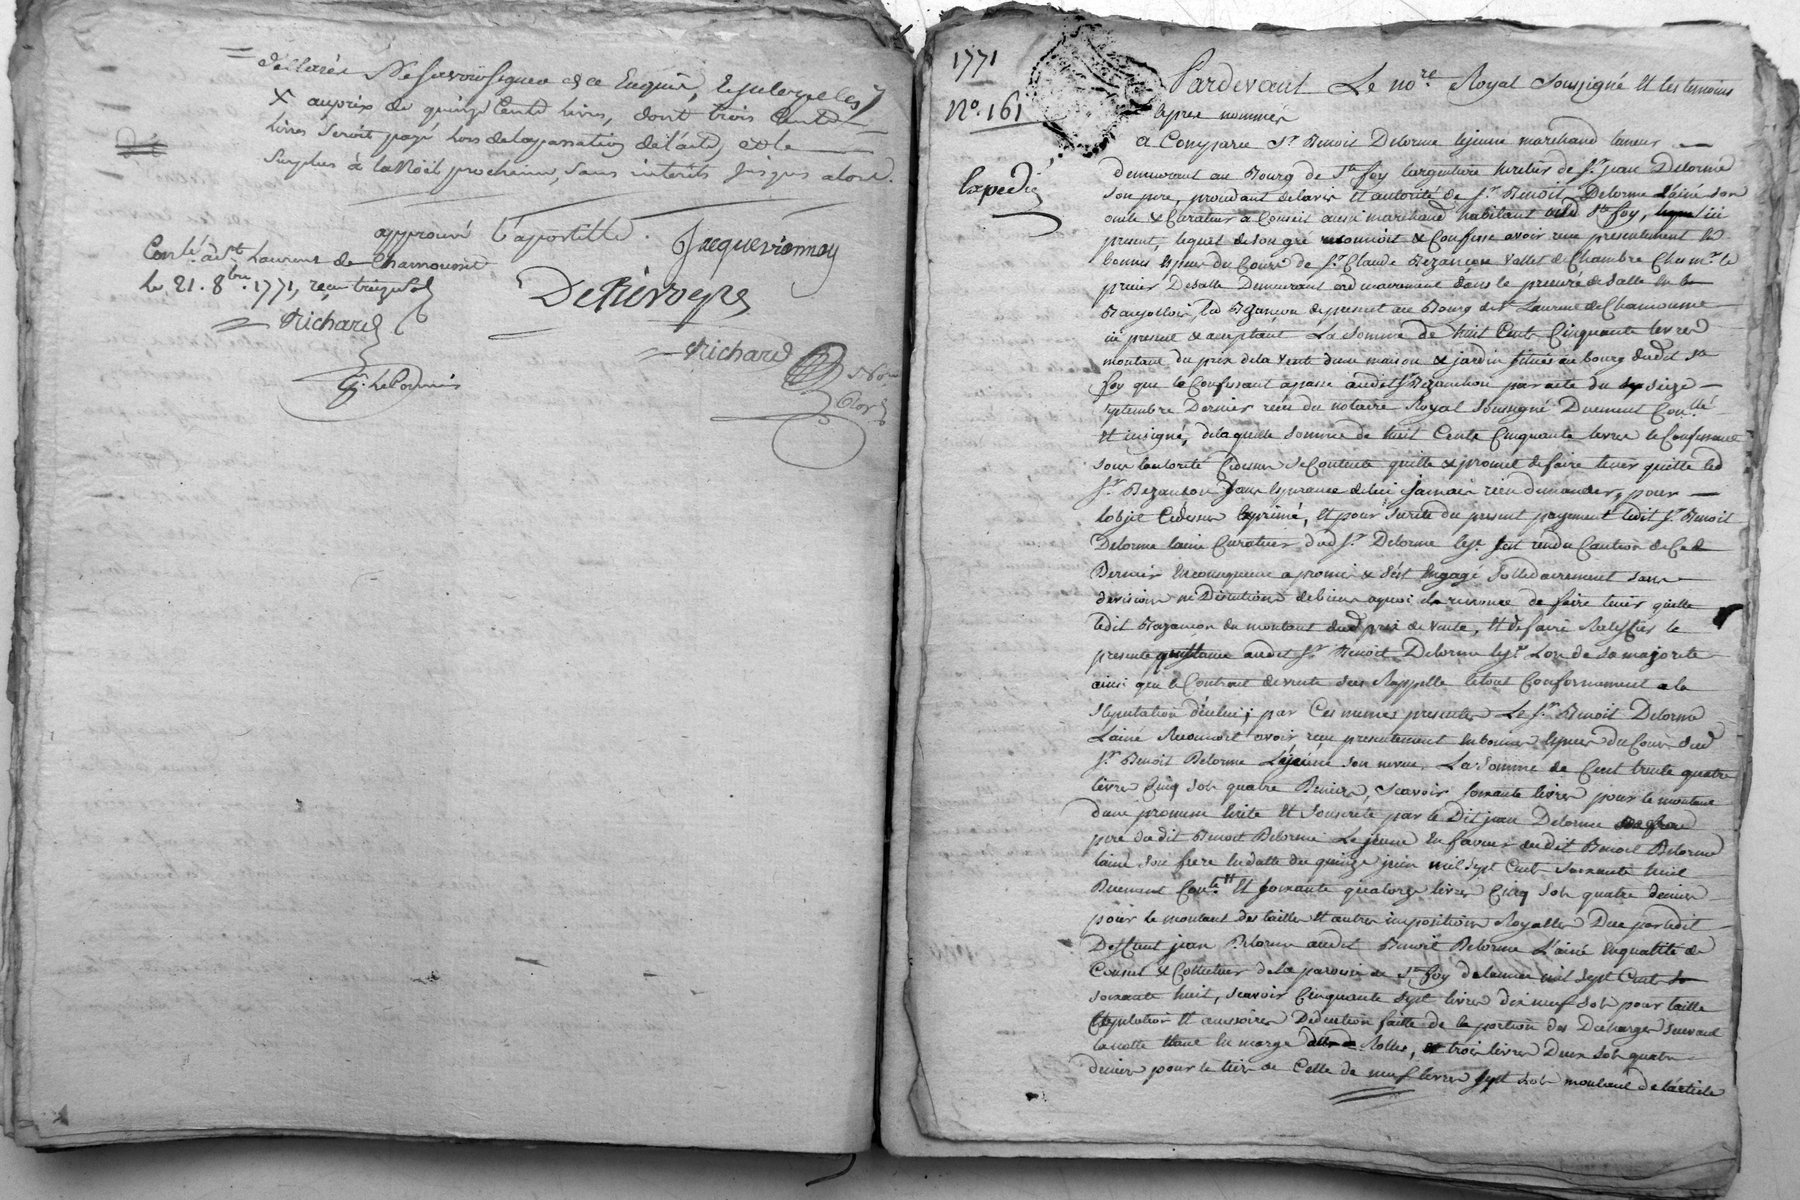 declarés ne savoir signer de ce Enquis,
X au prix de quinze Cents livres, dont trois Cents
livres seroit payé lors de la passation de l'acte, et le
surplus à la Noël prochaine, sans intérêts jusques alors.
approuvé l'apostille.
Jacquevionnay
Conlé. a St. Laurent de Chamousset
le 21. 8bre. 1771, reçu treize sols
DePierroyes
Richard
Richard
Nore
Royal
1771
No. 161
Expedié
Pardevant Le nore Royal soussigné et les temoins
apres nommés
a Comparu Sr Benoit Delorme lejeune marchand taneur
demeurant au Bourg de Ste foy largentiere heritier de Sr jean Delorme
son pere, procedant de lavis et autorité de Sr Benoit Delorme L'ainé son
oncle & Curateur a Conseil aussi marchand habitant aud Ste foy, ici
present, lequel de son gré reconnoit & Confesse avoir reçu presentement en
bonnes especes du Cours de Sr Claude Bezançon Vallet de Chambre Ches mr le
prieur Desalle Demeurant ordinairement dans le prieuré de Salle en
Baujollois, led Bezançon de present au Bourg de St Laurent de Chamousset
ici present & acceptant La Somme de huit Cent Cinquante livres
montant du prix de la vente dune maison & jardin situés au bourg dudit Ste
foy que le Confessant a passé audit Sr Bezançon par acte du seize
septembre Dernier reçu du notaire Royal soussigné Duement Conllé
et insigné, de laquelle Somme de huit Cents Cinquante livres le Confessant
sous lautorité Cidessus se Contente quitte & promet de faire tenir quitte led
Sr Bezançon sans esperance de lui jamais rien demander, pour
lobjet Cidessus exprimé, et pour sureté du present payement ledit Sr Benoit
Delorme lainé Curateur dud Sr Delorme leje sest rendu Caution de Ced
Dernier en consequence a promis & s'est Engagé Sollidairement sans
division ne Discution de biens a quoi il a renoncé de faire tenir quitte
ledit Bazançon du montant dud prix de vente, et de faire Ratiffier le
presente quittance audit Sr Benoit Delorme leje Lors de sa majorité
ainsi que le Contrat de vente sus Rappellé letout Conformement a la
Stipulation d'icelui; par Ces memes presentes Le Sr Benoit Delorme
Lainé Reconnoit avoir reçu presentement en bonnes especes du Cours dud
Sr Benoit Delorme Lejeune son neveu, La Somme de Cent trente quatre
livres Cinq sols quatre Deniers, scavoir soixante livres pour le montant
dune promesse ecrite et souscrite par le Dit jean Delorme
pere dudit Benoit Delorme Lejeune en faveur dudit Benoit Delorme
lainé son frere en datte du quinze juin mil sept Cent Soixante huit
Duement Conlée et soixante quatorze livres Cinq sols quatre deniers
pour le montant des tailles et autres impositions Royalles Due par ledit
Deffunt jean Delorme audit Benoit Delorme L'ainé En qualité de
Consul & Collecteur de la paroisse de Ste foy de lannée mil sept Cent
soixante huit, scavoir Cinquante sept livres dix neuf sols pour taille
Capitation et accessoires Deduction faitte de la portion des Decharges suivant
la notte etant en marge Rolles, et trois livres Deux sols quatre
deniers pour le tiers de Celle de neuf livres sept sols montant de larticle